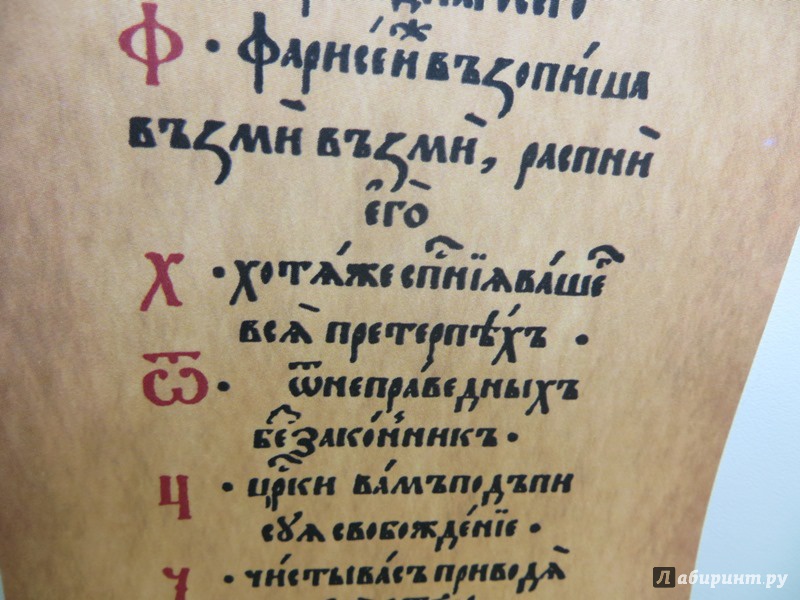 Ф • фарисе́й въꙁопи́ша
въꙁми̑ въꙁми̑, распни̑
є҆го̀
Х • хотѧ́же сп҃нїѧ ва́шег҃
всѧ̀ претерпѣ́хъ •
Ѿ • ѿ непра́ведныхъ
беꙁзако́нникъ •
Ц • цр҃ки ва́мъ подъпи
суѧ свобожде́нїе •
Ч • чи́сты ва́съ приводѧ̀
Лабиринт.ру